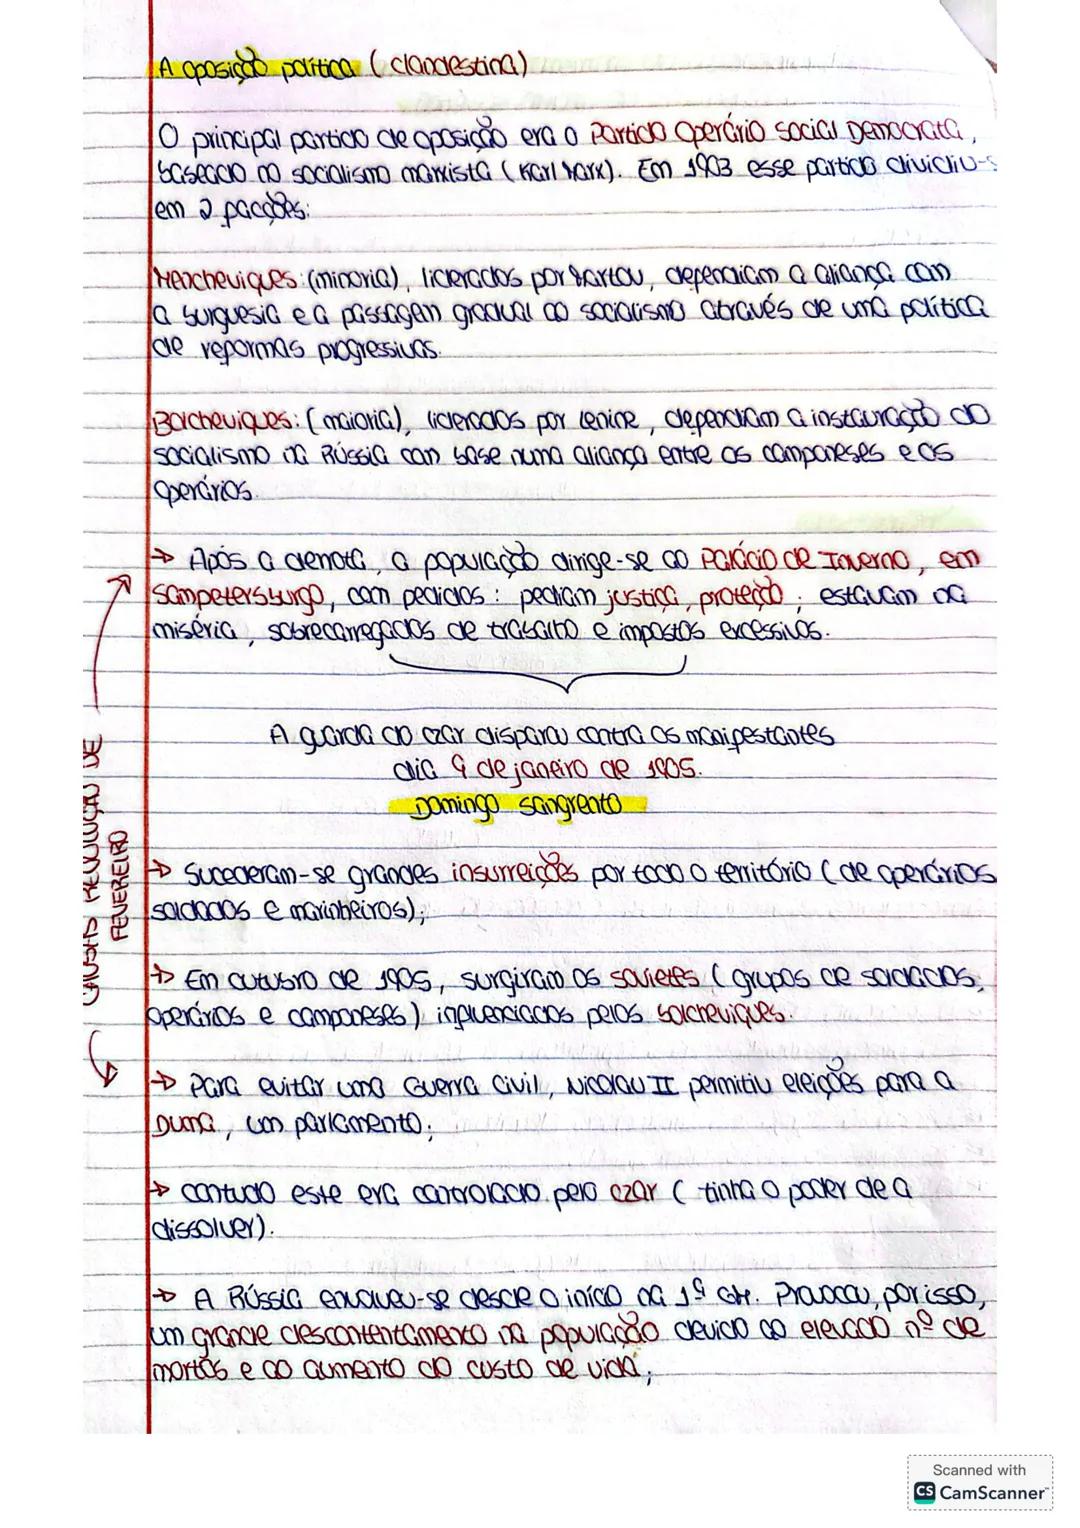 A oposição política (clandestina)
O principal partido de oposição era o Partido Operário Social Democrata,
baseado no socialismo marxista (Karl Marx). Em 1903 esse partido dividiu-s
em 2 facções:
Mencheviques: (minoria), liderados por Martov, defendiam a aliança com
a burguesia e a passagem gradual ao socialismo através de uma política
de reformas progressivas.
Bolcheviques: (maioria), liderados por Lenine, defendiam a instauração do
socialismo na Rússia com base numa aliança entre os camponeses e os
operários.
→ Após a derrota, a população dirige-se ao Palácio de Inverno, em
Sampetersburgo, com pedidos: pediam justiça, proteção; estavam na
miséria, sobrecarregados de trabalho e impostos excessivos.
A guarda do czar disparou contra os manifestantes
dia 9 de janeiro de 1905.
Domingo sangrento
→ Sucederam-se grandes insurreições por todo o território (de operários
soldados e marinheiros);
→ Em outubro de 1905, surgiram os sovietes (grupos de soldados,
operários e camponeses) influenciados pelos bolcheviques.
→ Para evitar uma Guerra Civil, Nicolau II permitiu eleições para a
Duma, um parlamento;
→ contudo este era controlado pelo czar (tinha o poder de a
dissolver).
→ A Rússia envolveu-se desde o início na 1ª GM. Provocou, por isso,
um grande descontentamento na população devido ao elevado nº de
mortos e ao aumento do custo de vida;
CAUSAS REVOLUÇÃO DE
FEVEREIRO
Scanned with
CS CamScanner